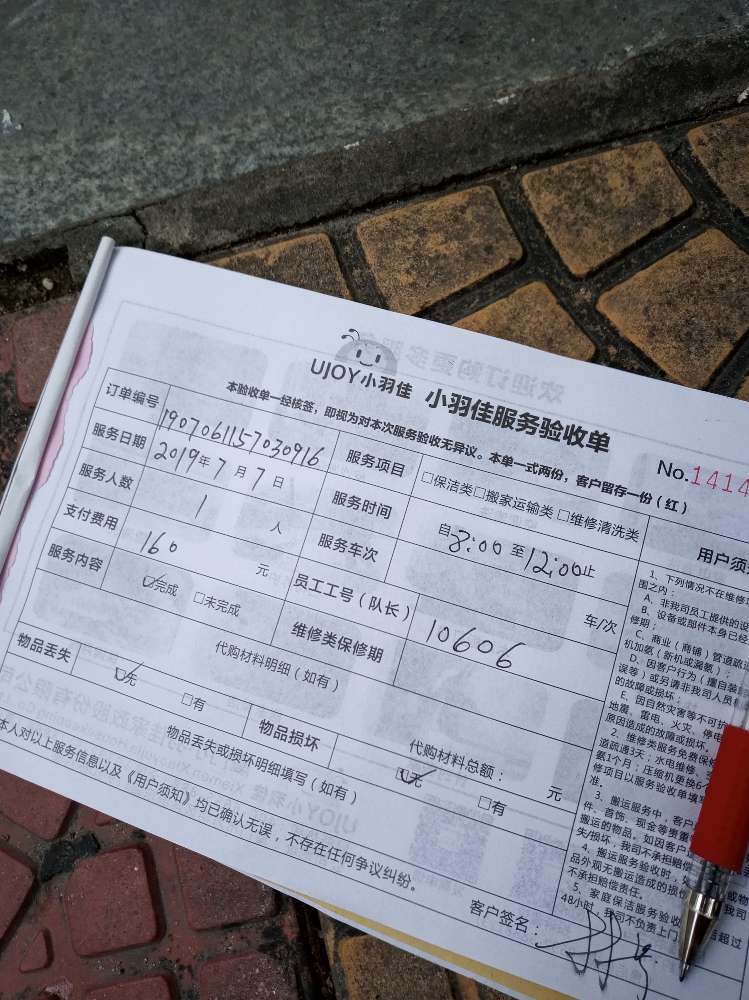 UJOY小羽佳 小羽佳服务验收单
本验收单一经核签，即视为对本次服务验收无异议。本单一式两份，客户留存一份（红）
No.1414
订单编号 1907061157030916 服务项目 □保洁类□搬家运输类□维修清洗类
服务日期 2019年7月7日 服务时间 自8:00至12:00止
服务人数 1 人 服务车次 车/次
支付费用 160 元 员工工号（队长） 10606
服务内容 ☑完成 □未完成 维修类保修期
代购材料明细（如有）
代购材料总额： 元
物品丢失 ☑无 □有 物品损坏 ☑无 □有
物品丢失或损坏明细填写（如有）
本人对以上服务信息以及《用户须知》均已确认无误，不存在任何争议纠纷。
客户签名：
用户须
1、下列情况不在维修
围之内：
A、非我司员工提供的设
B、设备或部件本身已经
修期；
C、商业（商铺）管道疏通
机加氨（新机或漏氨）；
D、因客户行为（擅自装
误等）或另请非我司人员
的故障或损坏；
E、因自然灾害等不可抗
地震、雷电、火灾、停电
原因造成的故障或损坏。
2、维修类服务免费保
道疏通3天；水电维修、
氨1个月；压缩机更换6个
修项目以服务验收单填写
准。
3、搬运服务中，客户
件、首饰、现金等贵重
搬运的物品。如因客户
失/损坏，我司不承担赔偿
4、搬运服务验收时，
品外观无搬运造成的损
不承担赔偿责任。
5、家庭保洁服务验收
48小时，我司不负责上门